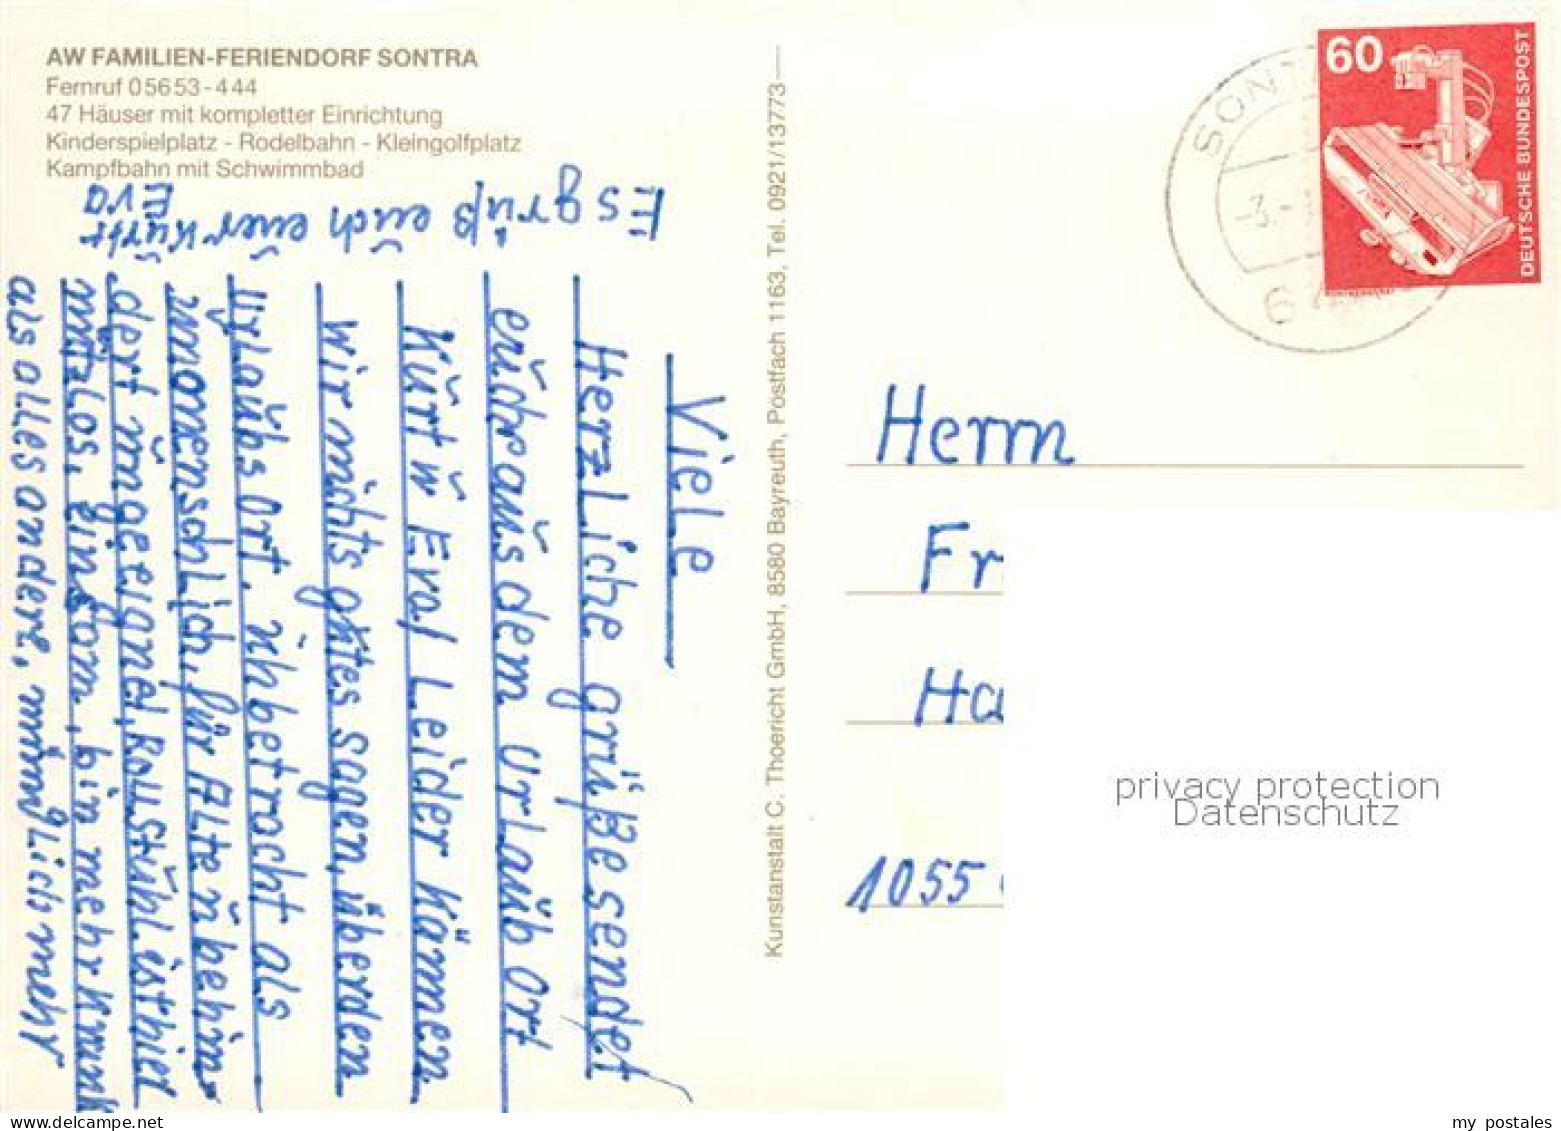 AW FAMILIEN-FERIENDORF SONTRA
Fernruf 05653-444
47 Häuser mit kompletter Einrichtung
Kinderspielplatz - Rodelbahn - Kleingolfplatz
Kampfbahn mit Schwimmbad
Viele
Herzliche grüße sendet
euch aus dem Urlaub Ort
Kurt u Eva! Leider Kännen
wir nichts gutes sagen, über den
Urlaubs Ort. ich betracht als
unmenschlich, für Alte u behin
dert ungeignet, Rollstuhl ist hier
nutzlos. einsam, bin mehr Krank
als alles andere, nicht mehr
Es grüß euch euer Kurt
Eva
Kunstanstalt C. Thoericht GmbH, 8580 Bayreuth, Postfach 1163, Tel. 0921/13773
SONT
-3.-
6
60
DEUTSCHE BUNDESPOST
Herrn
Fr
Ha
1055
privacy protection
Datenschutz
my postales